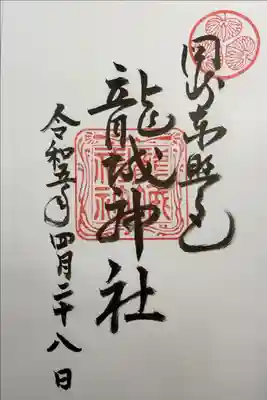 岡崎東照宮
龍城神社
令和五年四月二十八日